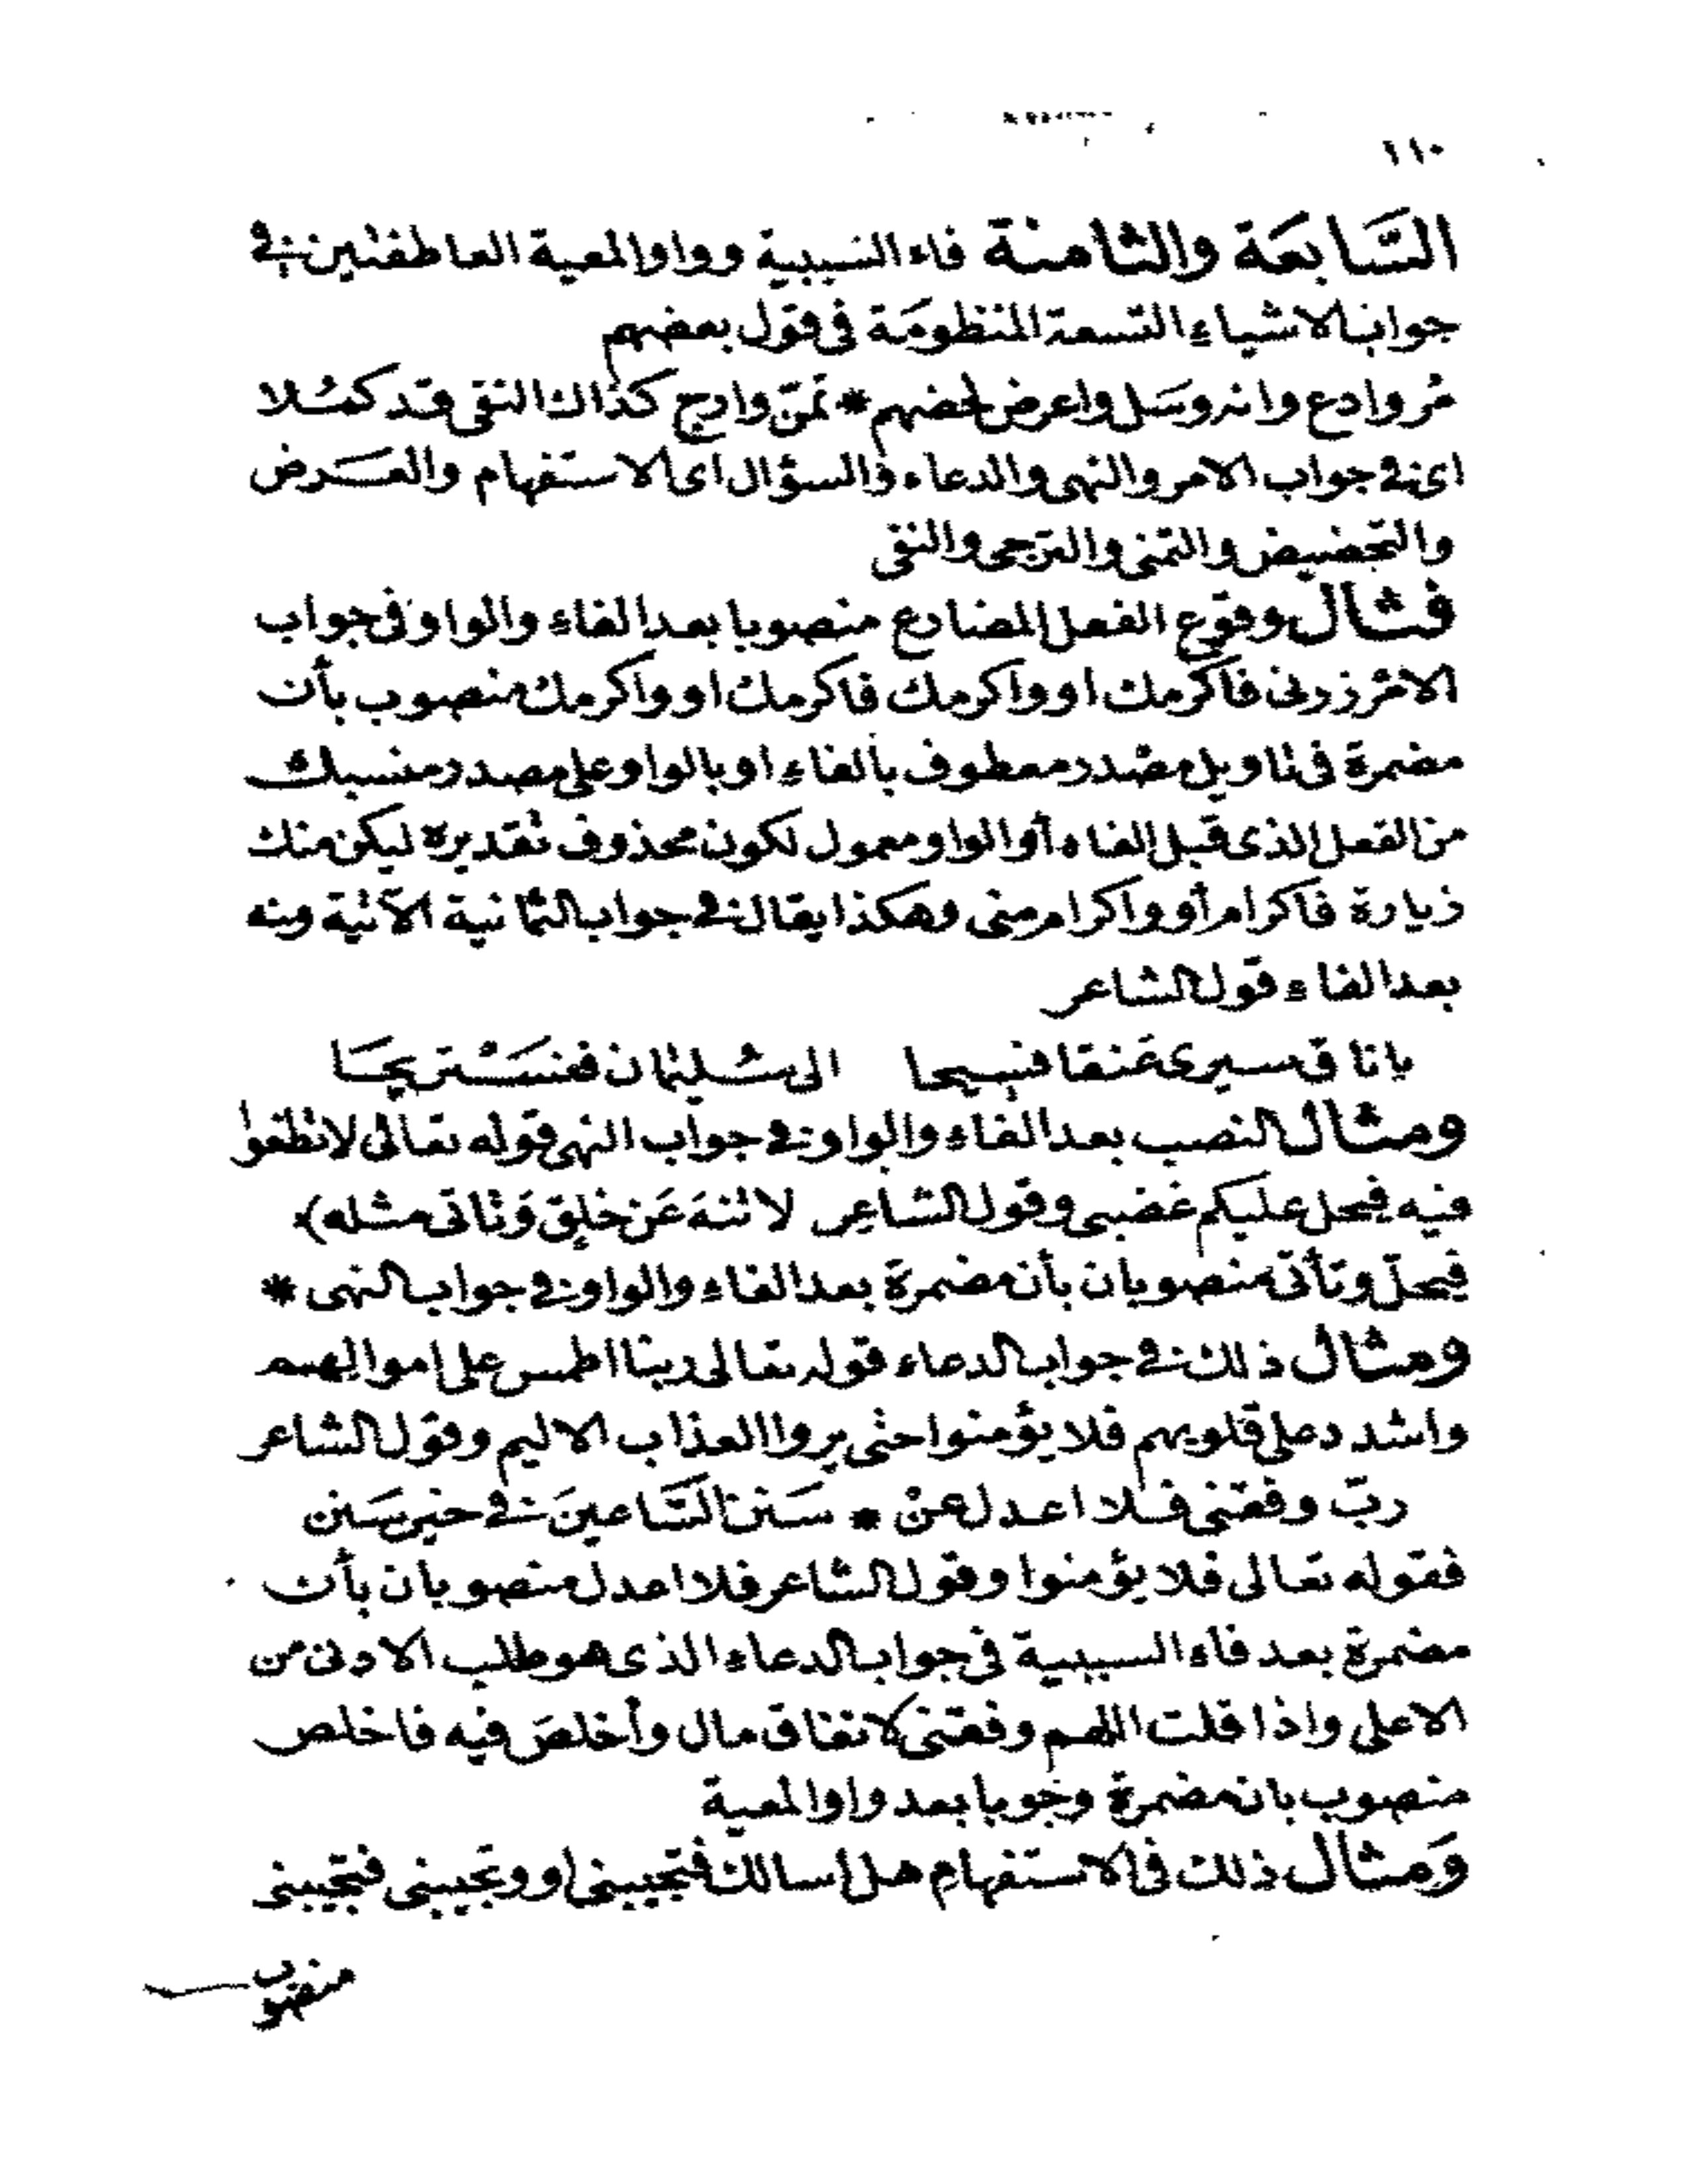 ١١٠
السَّابعَة والثامنة فاء السببية وواو المعية العاطفتين في
جواب الاشياء التسعة المنظومَة في قول بعضهم
مُر وادع وانه وسَل واعرض لحضهم * تمَنّ وارج كذاك النفي قد كمُلا
اى فى جواب الامر والنهى والدعاء والسؤال اى الاستفهام والعَرض
والتحضيض والتمنى والترجى والنفى
فمثال وقوع الفعل المضارع منصوبا بعد الفاء والواو فى جواب
الامر زرنى فاكرمك او واكرمك فاكرمك او واكرمك منصوب بأن
مضمرة فى تاويل مصْدر معطوف بالفاء او بالواو على مصدر منسبك
من الفعل الذى قبل الفاء أو الواو معمول لكون محذوف تقديره ليكن منك
زيارة فاكرام أو واكرام منى وهكذا يقال فى جواب الثمانية الآتية ومنه
بعد الفاء قول الشاعر
يا ناق سيرى عَنقا فسيحا الى سُليمان فنسَتريحَا
ومثال النصب بعد الفاء والواو فى جواب النهى قوله تعالى لا تطغوا
فيه فيحل عليكم غضبى وقول الشاعِر لا تنهَ عَن خلِق وَتاتى مثله)
فيحلّ وتأتى منصوبان بأن مضمرة بعد الفاء والواو فى جواب النهى *
ومثال ذلك فى جواب الدعاء قوله تعالى ربنا اطمس على اموالهم
واشدد على قلوبهم فلا يؤمنوا حتى يروا العذاب الاليم وقول الشاعر
ربّ وفقنى فلا اعدل عنْ * سَنن السَّاعينَ فى خير سَنن
فقوله تعالى فلا يؤمنوا وقول الشاعر فلا اعدل منصوبان بأن
مضمرة بعد فاء السببية فى جواب الدعاء الذى هو طلب الادنى من
الاعلى واذا قلت اللهم وفقنى لانفاق مال وأخلصَ فيه فاخلص
منصوب بان مضمرة وجوبا بعد واو المعية
وَمثال ذلك فى الاستفهام هل اسالك فتجيبنى او وتجيبنى فتجيبنى
منصوب